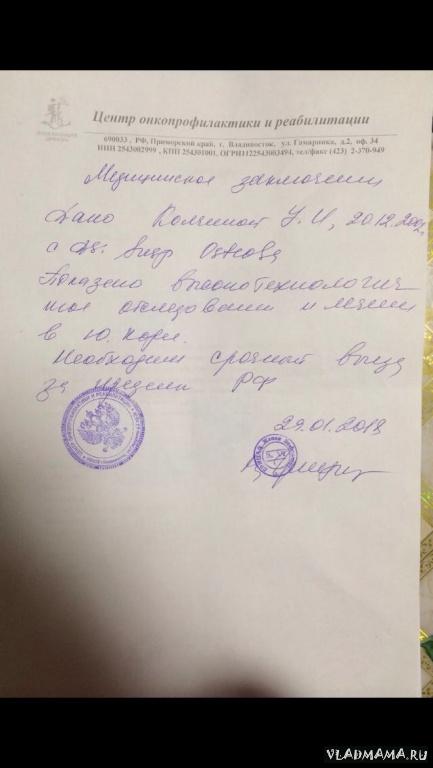 Центр онкопрофилактики и реабилитации
690033 , РФ, Приморский край, г. Владивосток, ул. Гамарника, д.2, оф. 34
ИНН 2543002999 , КПП 254301001, ОГРН1122543003494, тел/факт (423) 2-370-949
Медицинское заключение
Дано У.И, 20.12.
с DS:
Показано высокотехнологич-
ное обследование и лечение
в Ю. Корее.
Необходим срочный выезд
за пределы РФ
29.01.2018
VLADMAMA.RU